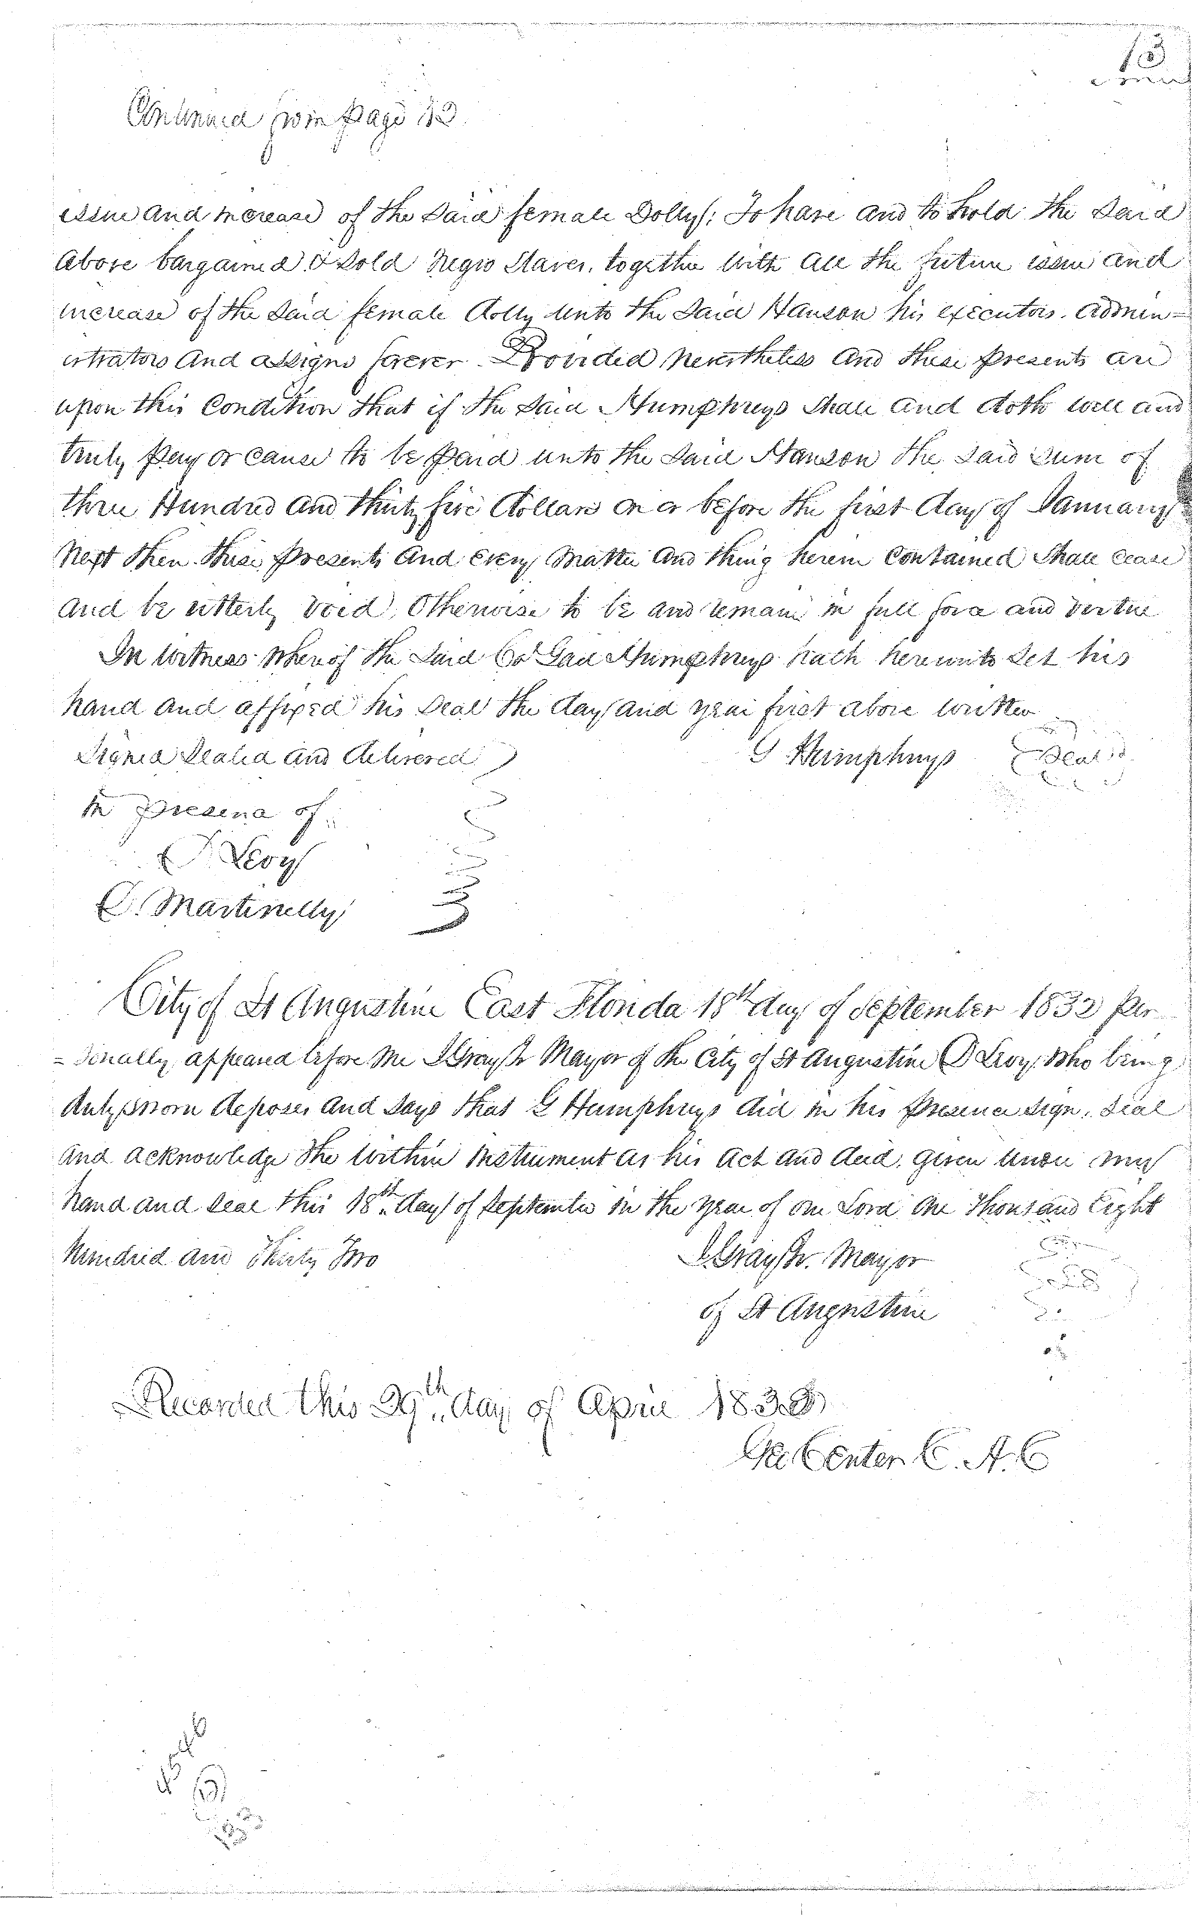 13
Continued from page 12.
issue and increase of the said female Dolly; To have and to hold the said
above bargained & sold Negro Slaves, together with all the future issue and
increase of the said female Dolly unto the said Hanson his executors. admin-
istrators and assigns forever. Provided nevertheless and these presents are
upon this Condition that if the said Humphreys shall and doth well and
truly pay or cause to be paid unto the said Hanson the said sum of
three Hundred and thirty five Dollars on or before the first day of January
next then these presents and every matter and thing herein contained shall cease
and be utterly void, Otherwise to be and remain in full force and vertue
In witness whereof the said Col Gad Humphreys hath hereunto set his
hand and affixed his seal the day and year first above written
Signed Sealed and delivered
G Humphreys Seal
in presence of
Levy
Martinelly
City of St Augustine East Florida 18th day of September 1832 Per
=sonally appeared before me Gray Mayor of the City of St Augustine Levy, who being
duly sworn deposes and says that G Humphreys did in his presence sign, seal
and acknowledge the within instrument as his act and deed. given under my
hand and seal this 18th day of September in the year of our Lord one thousand Eight
hundred and Thirty Two
Gray Mayor
of St Augustine
Recorded this 29th day of April 1833
Center C. A. C